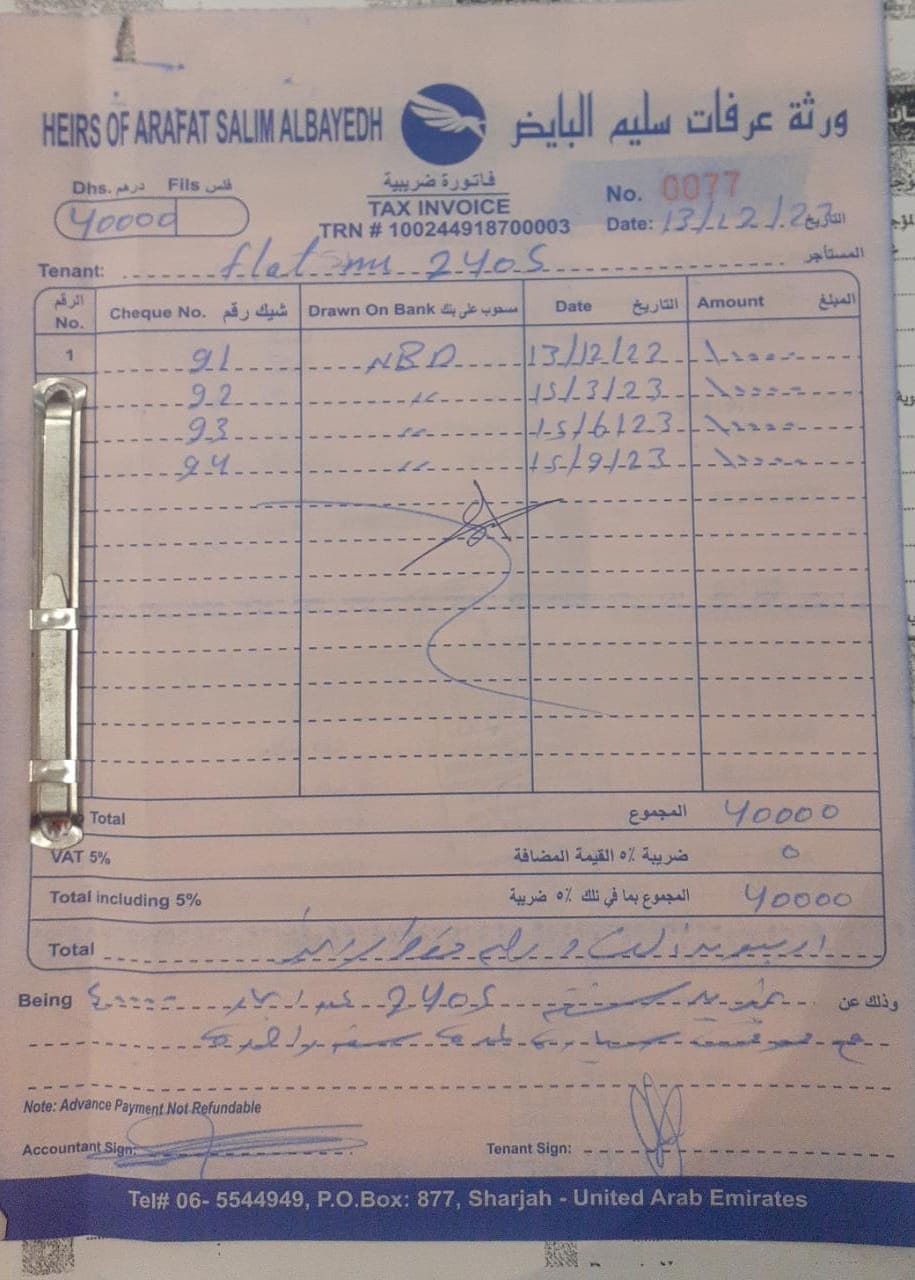 HEIRS OF ARAFAT SALIM ALBAYEDH ورثة عرفات سليم البايض
Dhs. درهم Fils فلس
40000
فاتورة ضريبية
TAX INVOICE
TRN # 100244918700003
No. 0077
Date: 13/12/22 التاريخ
Tenant: flat no 2405 المستأجر
الرقم No. Cheque No. شيك رقم Drawn On Bank مسحوب على بنك Date التاريخ Amount المبلغ
1 91 NBD 13/12/22 10000
92 " 15/3/23 10000
93 " 15/6/23 10000
94 " 15/9/23 10000
Total المجموع 40000
VAT 5% ضريبة ٥٪ القيمة المضافة 0
Total including 5% المجموع بما في ذلك ٥٪ ضريبة 40000
Total اربعون الف درهم فقط
Being تجديد شقة 2405 وذلك عن
مع موقف سيارة لمدة سنة واحدة
Note: Advance Payment Not Refundable
Accountant Sign:
Tenant Sign:
Tel# 06- 5544949, P.O.Box: 877, Sharjah - United Arab Emirates